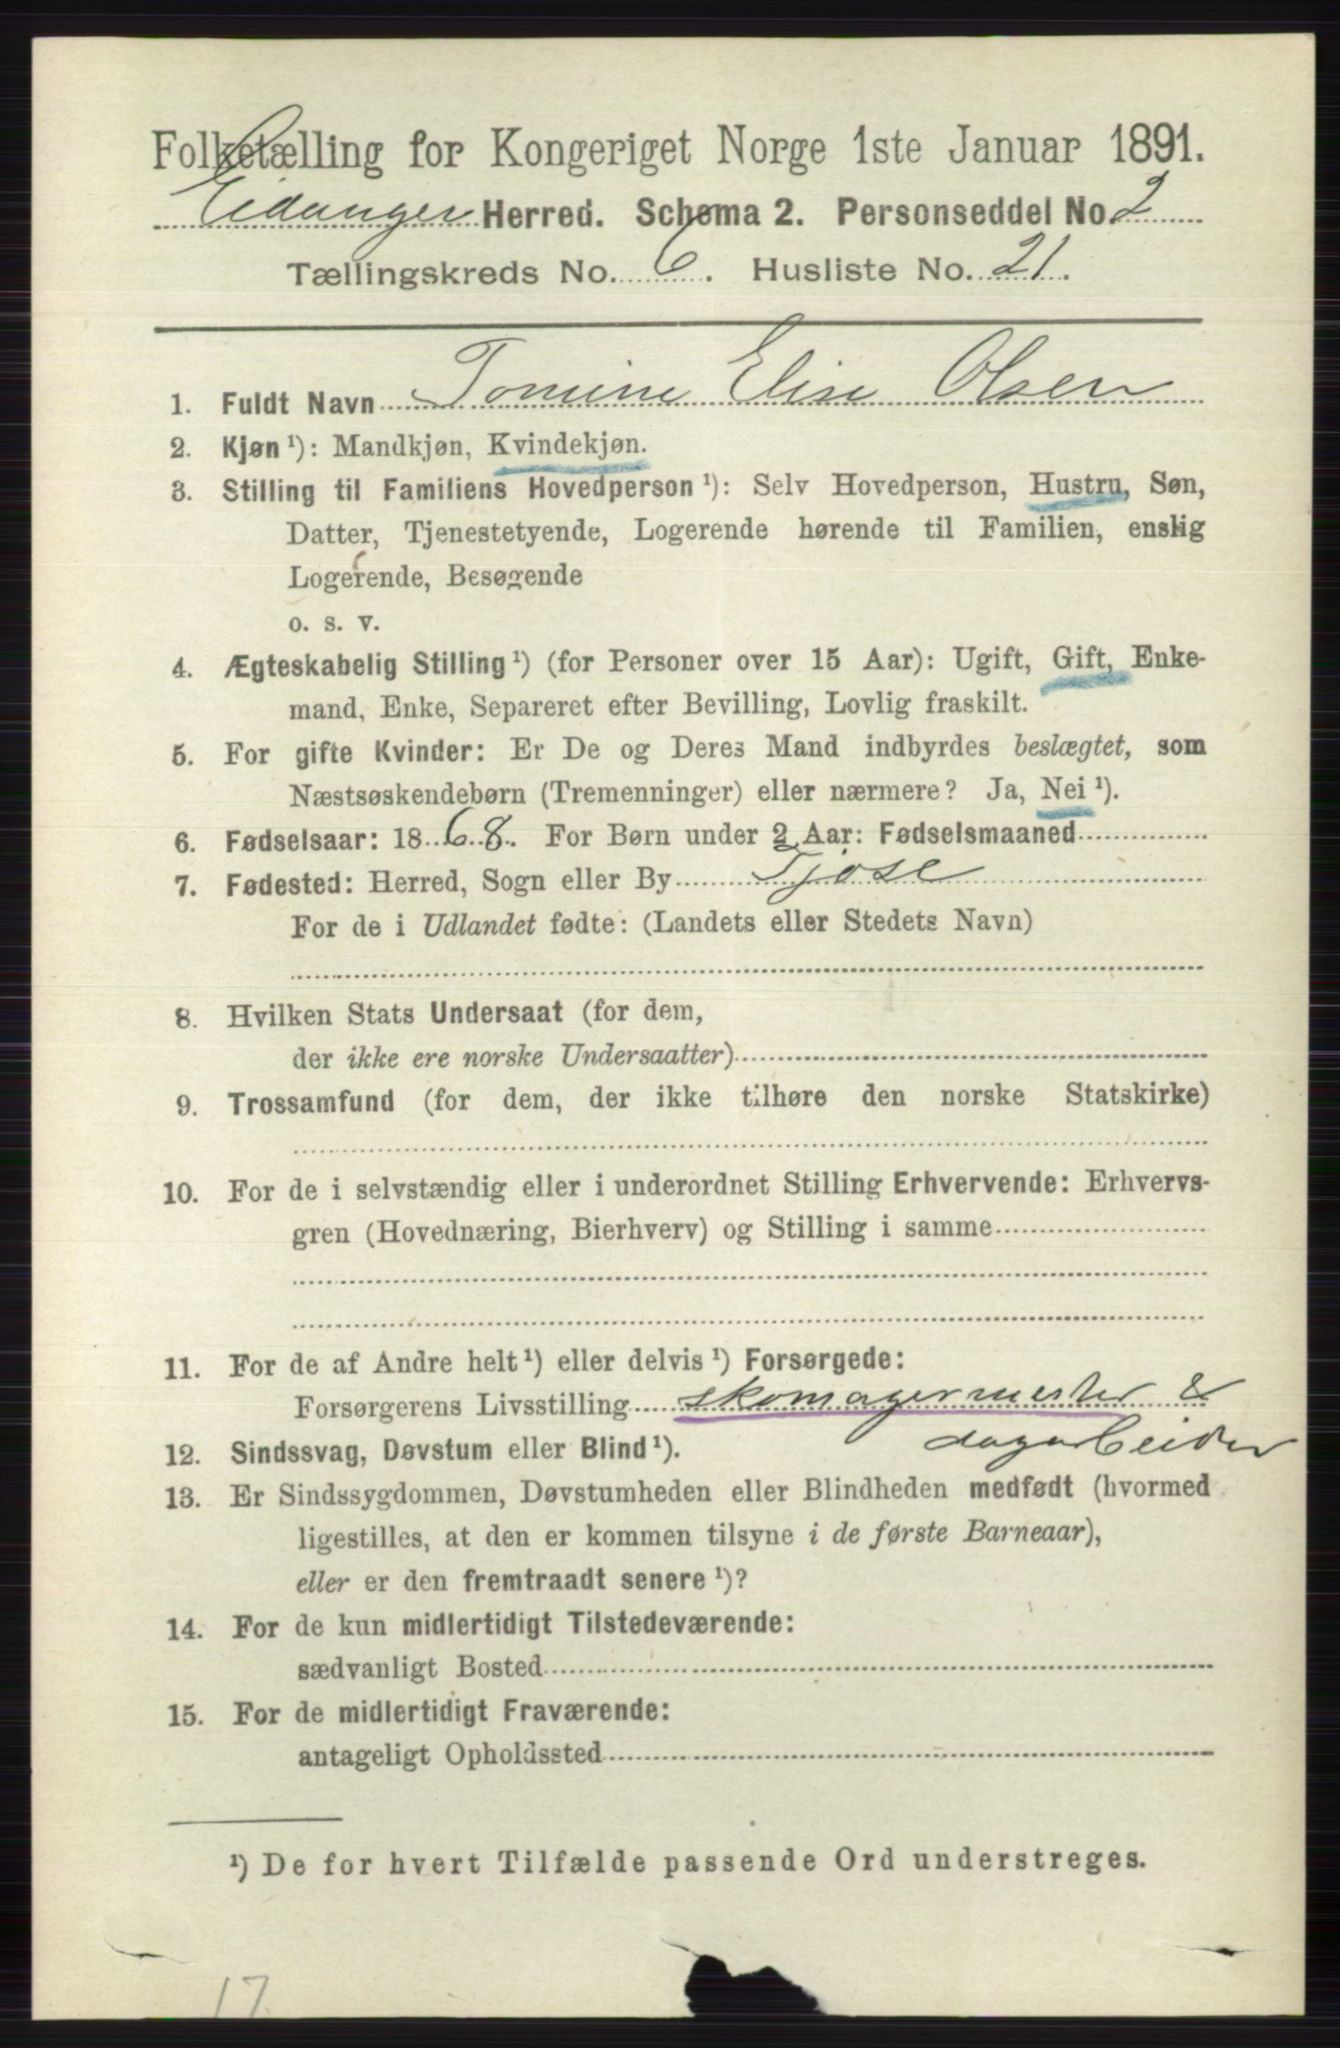 Folketælling for Kongeriget Norge 1ste Januar 1891.
Eidanger Herred. Schema 2. Personseddel No 2
Tællingskreds No. 6. Husliste No. 21.
1. Fuldt Navn Tomine Elise Olsen
2. Kjøn ¹): Mandkjøn, Kvindekjøn.
3. Stilling til Familiens Hovedperson ¹): Selv Hovedperson, Hustru, Søn,
Datter, Tjenestetyende, Logerende hørende til Familien, enslig
Logerende, Besøgende
o. s. v.
4. Ægteskabelig Stilling ¹) (for Personer over 15 Aar): Ugift, Gift, Enke-
mand, Enke, Separeret efter Bevilling, Lovlig fraskilt.
5. For gifte Kvinder: Er De og Deres Mand indbyrdes beslægtet, som
Næstsøskendebørn (Tremenninger) eller nærmere? Ja, Nei ¹).
6. Fødselsaar: 1868. For Børn under 2 Aar: Fødselsmaaned
7. Fødested: Herred, Sogn eller By Tjøse
For de i Udlandet fødte: (Landets eller Stedets Navn)
8. Hvilken Stats Undersaat (for dem,
der ikke ere norske Undersaatter)
9. Trossamfund (for dem, der ikke tilhøre den norske Statskirke)
10. For de i selvstændig eller i underordnet Stilling Erhvervende: Erhvervs-
gren (Hovednæring, Bierhverv) og Stilling i samme
11. For de af Andre helt ¹) eller delvis ¹) Forsørgede:
Forsørgerens Livsstilling skomagermester &
dagarbeider
12. Sindssvag, Døvstum eller Blind ¹).
13. Er Sindssygdommen, Døvstumheden eller Blindheden medfødt (hvormed
ligestilles, at den er kommen tilsyne i de første Barneaar),
eller er den fremtraadt senere ¹)?
14. For de kun midlertidigt Tilstedeværende:
sædvanligt Bosted
15. For de midlertidigt Fraværende:
antageligt Opholdssted
¹) De for hvert Tilfælde passende Ord understreges.
17